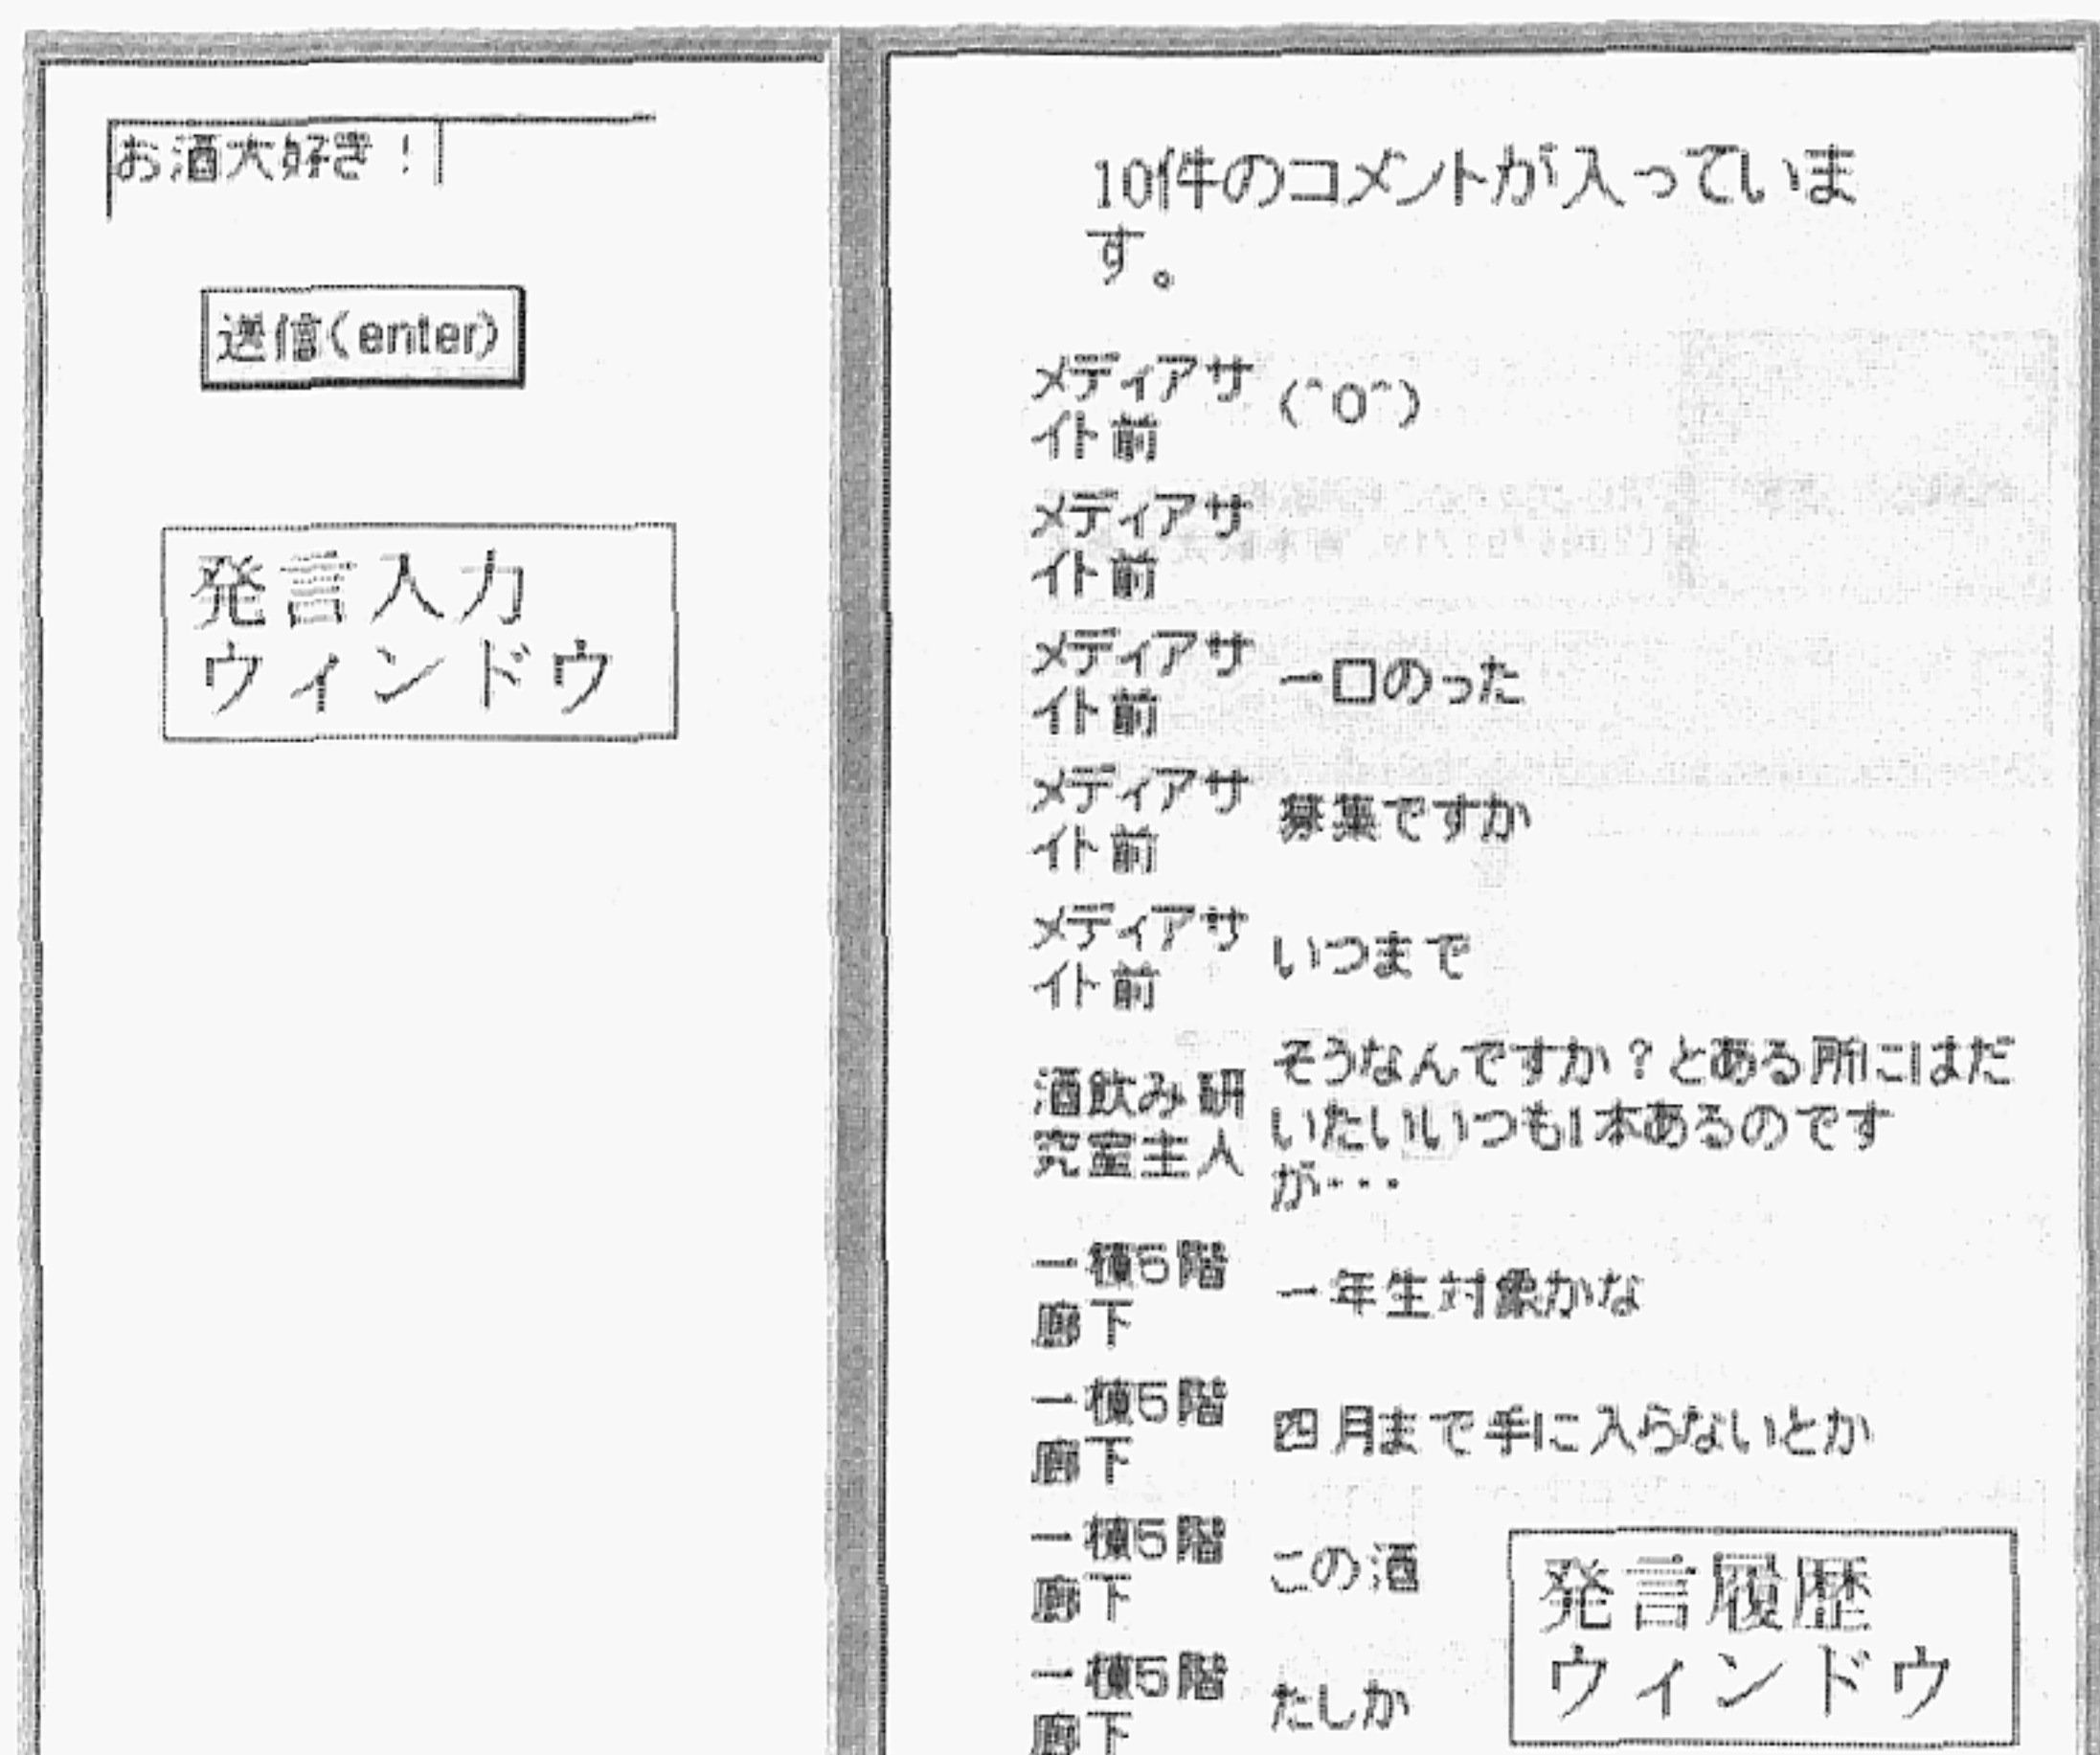 お酒大好き！
送信(enter)
発言入力
ウィンドウ
10件のコメントが入っていま
す。
メディアサ
イト前
(^O^)
メディアサ
イト前
メディアサ
イト前
一口のった
メディアサ
イト前
募集ですか
メディアサ
イト前
いつまで
酒飲み研
究室主人
そうなんですか？とある所にはだ
いたいいつも1本あるのです
が・・・
一棟5階
廊下
一年生対象かな
一棟5階
廊下
四月まで手に入らないとか
一棟5階
廊下
この酒
一棟5階
廊下
たしか
発言履歴
ウィンドウ